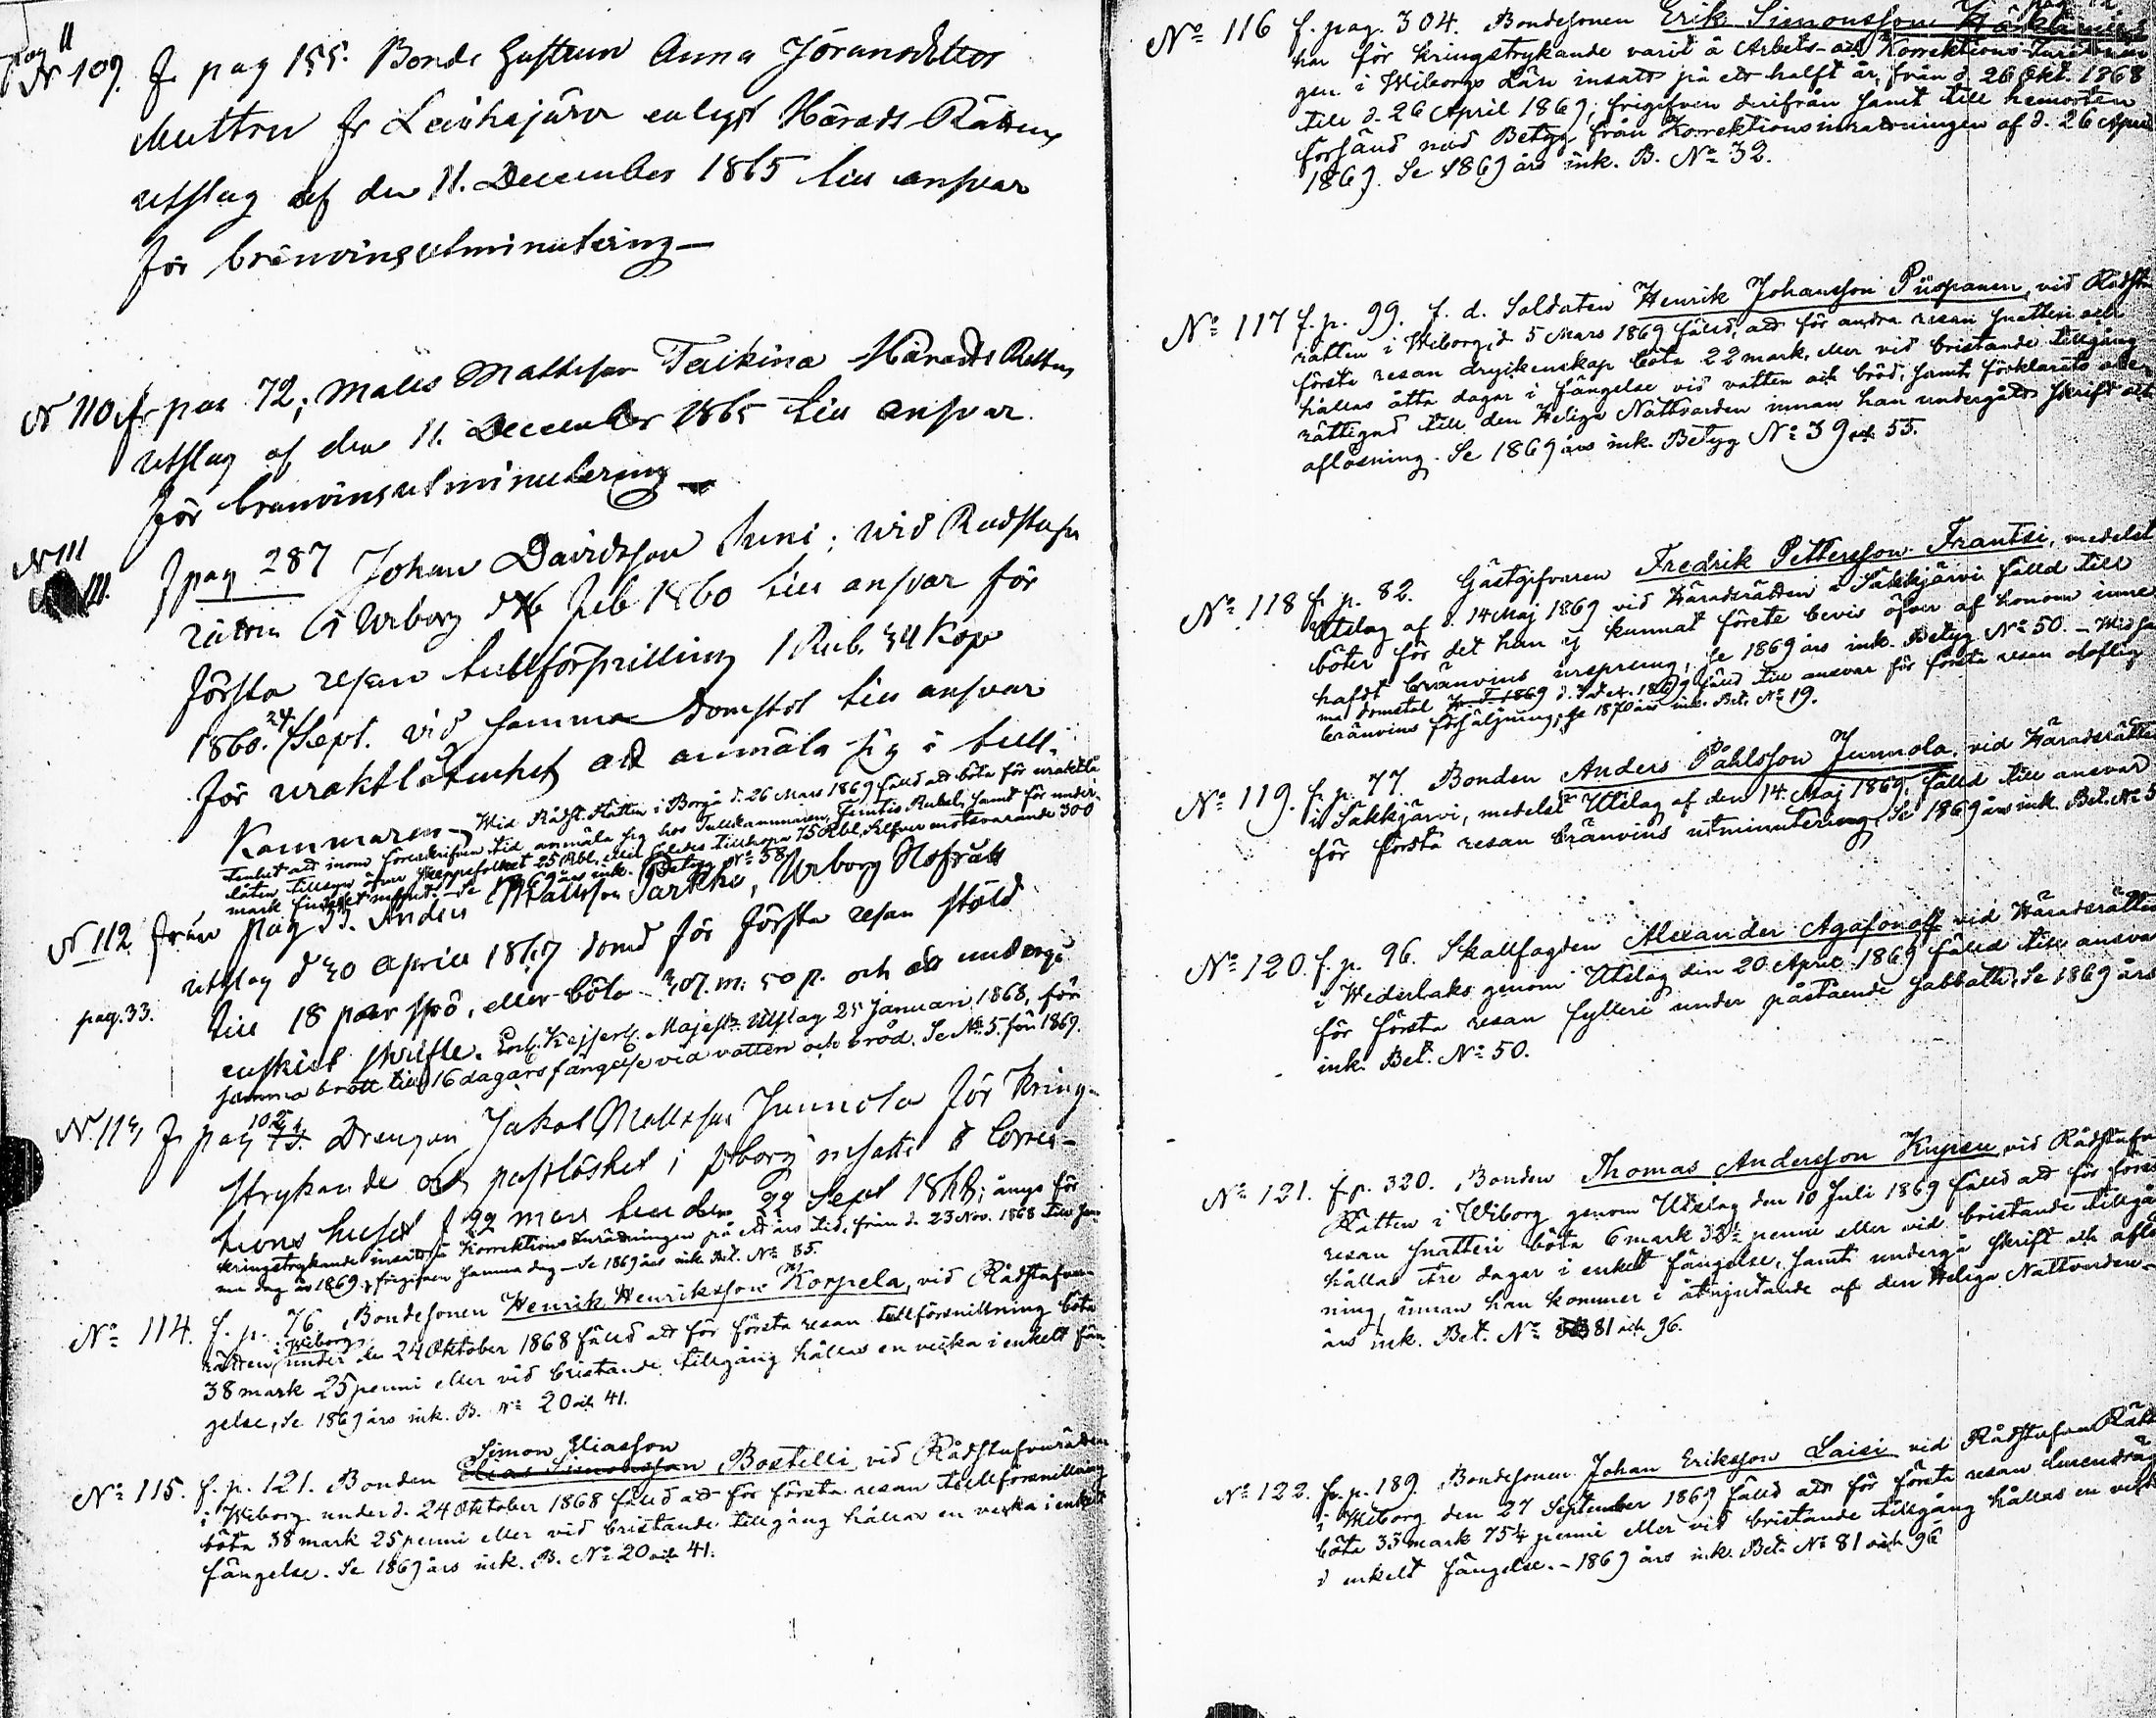 pag 11
N 109. f pag 155. Bonde hustrun Anna Jöransdotter
Muttru fr Leihajärvi enligt Härads Rättens
utslag af den 11. December 1865 till ansvar
för bränvinsutminutering —
N 110 fr pag 72; Matts Mattsson Taikina Härads Rättens
utslag af den 11. December 1865 till ansvar
för bränvinsutminutering —
N 111
111. f pag 287 Johan Davidsson Suni; vid Rådstufvu
rätten i Wiborg d 16 Feb 1860 till ansvar för
första resan tullförsnillning 1 Rub. 34 Kop
1860. 24/Sept. vid samma domstol till ansvar
för uraktlåtenhet att anmäla sig i tull-
Kammaren — Wid Rådst. Rätten i Borgå d. 26 Mars 1869 fälld att böta för uraktlå-
tenhet att inom föreskrifven tid anmäla sig hos Tullkammaren, Femtio Rubel, samt för under-
låten tillsyn öfver skeppsfolket 25 Rbl, eller således tillhopa 75 Rbl, Silfver motsvarande 300
mark finskt mynt. Se 1869 års ink. Betyg N:o 38.
N 112. från pag 33. Anders Mattsson Parkki, Wiborg Hofrätt
utslag d 30 April 1867 dömd för första resan stöld
pag. 33. till 18 par spö, eller böta 307. m: 50 p. och att undergå
enskilt skrifte. Enl. Kejserl. Majest:s Utslag 25 Januari 1868, för
samma brott till 16 dagars fängelse vid vatten och bröd. Se N:o 5. för 1869.
N. 113 f pag 102 Drengen Jakob Mattsson Junnola för kring-
strykande och passlöshet i Wiborg insatts å Correc-
tions huset f 22 mars till den 22 Sept 1868; ånyo för
kringstrykande insatts å Korrektions Inrättningen på ett års tid, från d. 23 Nov. 1868 till sam-
ma dag år 1869, frigifven samma dag — Se 1869 års ink. Bet. N:o 85.
N:o 114. f. p. 76. Bondesonen Henrik Henriksson Korpela, vid Rådstufvu-
rätten i Wiborg under den 24 Oktober 1868 fälld att för första resan tullförsnillning böta
38 mark 25 penni eller vid bristande tillgång hållas en vecka i enkelt fän-
gelse, Se 1869 års ink. B. N:o 20 och 41.
Simon Eliasson
N:o 115. f. p. 121. Bonden Elias Simonsson Bostelli, vid Rådstufvurätten
i Wiborg under d. 24 Oktober 1868 fälld att för första resan tullförsnillning
böta 38 mark 25 penni eller vid bristande tillgång hållas en vecka i enkelt
fängelse. Se 1869 års ink. B. N:o 20 och 41.
N:o 116 f. pag. 304. Bondesonen Erik Simonsson
har för kringstrykande varit å Arbets- och Korrektions-Inrättnin-
gen i Wiborgs Län insatt på ett halft år, från d. 26 Okt. 1868
till d. 26 April 1869; frigifven derifrån samt till hemorten
försänd med Betyg från Korrektionsinrättningen af d. 26 April
1869. Se 1869 års ink. B. N:o 32.
N:o 117 f. p. 99. f. d. Soldaten Henrik Johansson Piispanen, vid Rådst.
rätten i Wiborg d. 5 Mars 1869 fälld, att för andra resan snatteri och
första resan dryckenskap böta 22 mark, eller vid bristande tillgång
hållas åtta dagar i fängelse vid vatten och bröd, samt förklarats obe-
rättigad till den Heliga Nattvarden innan han undergått skrift och
aflösning. Se 1869 års ink. Betyg N:o 39 och 55.
N:o 118 f. p. 82. Gästgifvaren Fredrik Pettersson Frantsi, medelst
Utslag af d. 14 Maj 1869 vid Häradsrätten i Säkkjärvi fälld till
böter för det han ej kunnat förete bevis öfver af honom inne-
hafdt bränvins ursprung, Se 1869 års ink. Betyg N:o 50. — Wid sam-
ma domstol d. 7 Okt. 1869 fälld till ansvar för första resan olaflig
bränvins försäljning, Se 1870 års ink. Bet. N:o 19.
N:o 119. f. p. 77. Bonden Anders Påhlsson Junnola, vid Häradsrätten
i Säkkjärvi, medelst Utslag af den 14. Maj 1869, fälld till ansvar
för första resan bränvins utminutering, Se 1869 års ink. Bet. N:o 5
N:o 120. f. p. 96. Skallfogden Alexander Agafonoff vid Häradsrätten
i Wederlaks genom Utslag den 20 April 1869 fälld till ansvar
för första resan fylleri under påstående sabbath, Se 1869 års
ink. Bet. N:o 50.
N:o 121. f. p. 320. Bonden Thomas Andersson Kupsu, vid Rådstufvu
Rätten i Wiborg genom Utslag den 10 Juli 1869 fälld att för första
resan snatteri böta 6 mark 33½ penni eller vid bristande tillgång
hållas tre dagar i enkelt fängelse, samt undergå skrift och aflös-
ning, innan han kommer i åtnjutande af den Heliga Nattvarden —
års ink. Bet. N:o 81 och 96.
N:o 122. f. p. 189. Bondesonen Johan Eriksson Laisi vid Rådstufvu Rätten
i Wiborg den 27 September 1869 fälld att för första resan
böta 33 mark 75¼ penni eller vid bristande tillgång hållas en vecka
i enkelt fängelse. — 1869 års ink. Bet. N:o 81 och 96